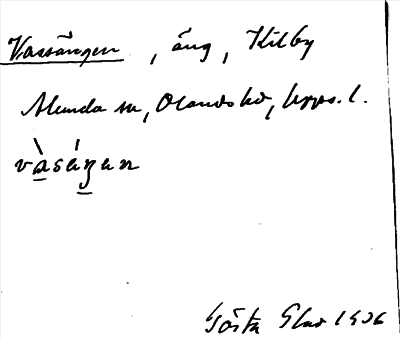 Vassängen, äng, Kilby
Alunda sn, Olands hd, Upps. l.
vàsáŋen
Gösta 1906